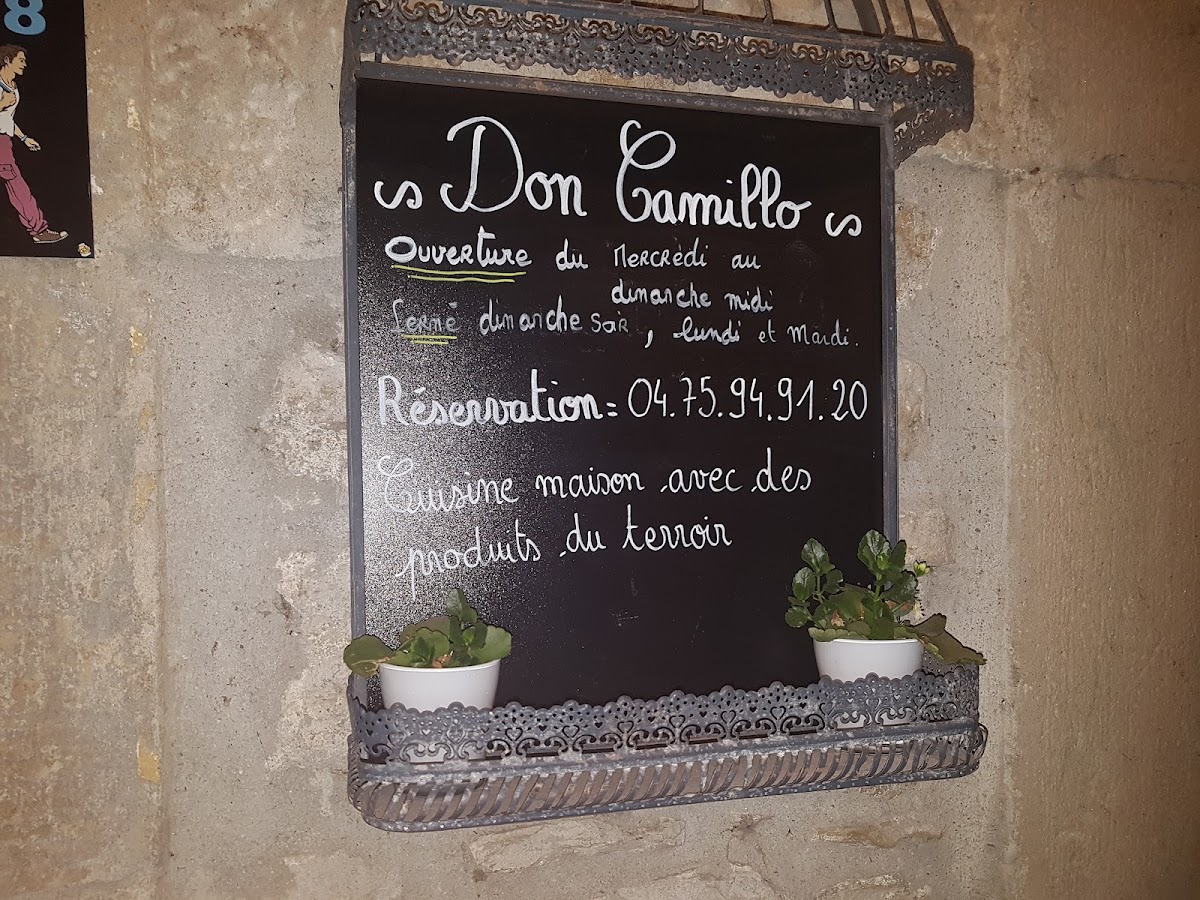 8
Don Camillo
Ouverture du Mercrèdi au
dimanche midi
Fermé dimanche soir, lundi et Mardi.
Réservation = 04.75.94.91.20
Cuisine maison avec des
produits du terroir